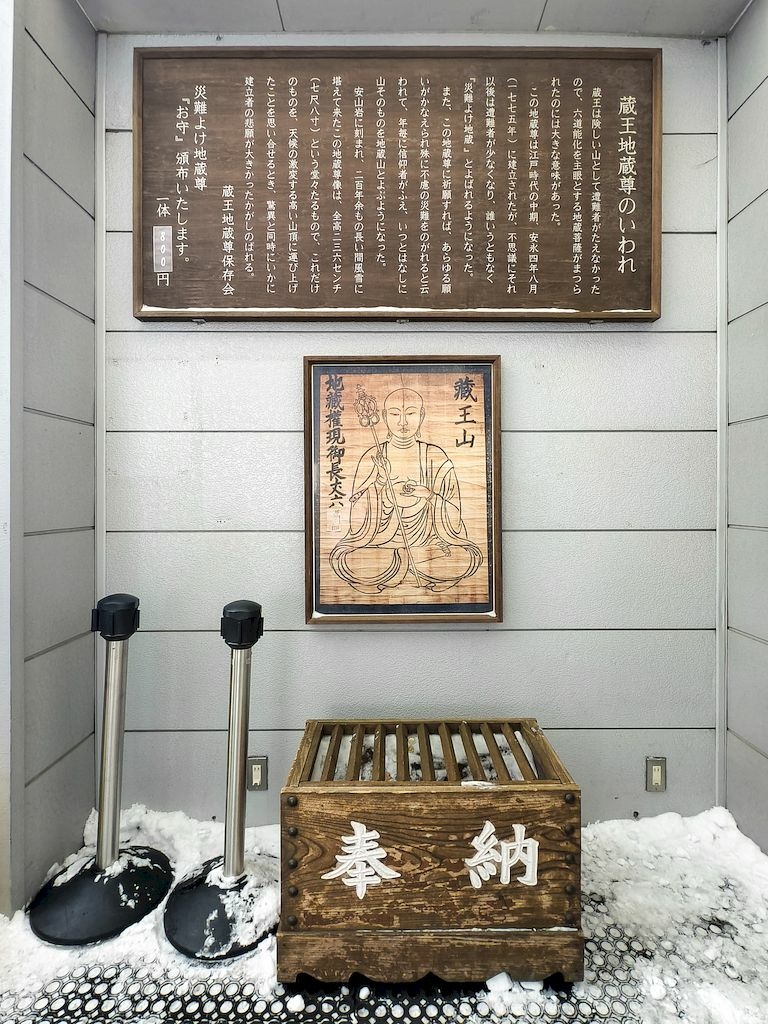 蔵王地蔵尊のいわれ
蔵王は険しい山として遭難者がたえなかった
ので、六道能化を主眼とする地蔵菩薩がまつら
れたのには大きな意味があった。
この地蔵尊は江戸時代の中期、安永四年八月
(一七七五年)に建立されたが、不思議にそれ
以後は遭難者が少なくなり、誰いうともなく
『災難よけ地蔵』とよばれるようになった。
また、この地蔵尊に祈願すれば、あらゆる願
いがかなえられ殊に不慮の災難をのがれると云
われて、年毎に信仰者がふえ、いつとはなしに
山そのものを地蔵山とよぶようになった。
安山岩に刻まれ、二百年余もの長い間風雪に
堪えて来たこの地蔵尊像は、全高二三六センチ
(七尺八寸)という堂々たるもので、これだけ
のものを、天候の激変する高い山頂に運び上げ
たことを思い合せるとき、驚異と同時にいかに
建立者の悲願が大きかったかがしのばれる。
蔵王地蔵尊保存会
災難よけ地蔵尊
『お守』頒布いたします。
一体 800円
蔵王山
地蔵権現御長丈六
奉納